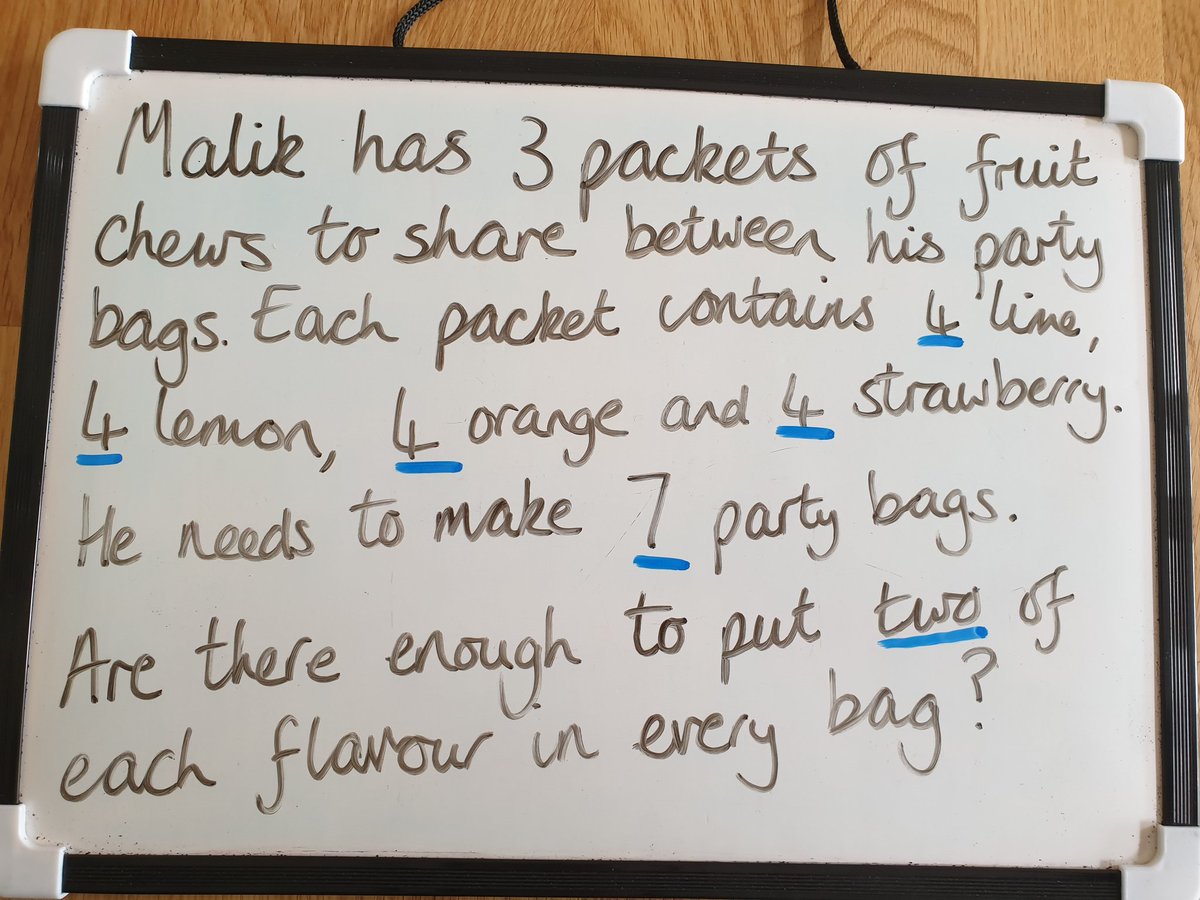 Malik has 3 packets of fruit
chews to share between his party
bags. Each packet contains 4 lime,
4 lemon, 4 orange and 4 strawberry.
He needs to make 7 party bags.
Are there enough to put two of
each flavour in every bag?